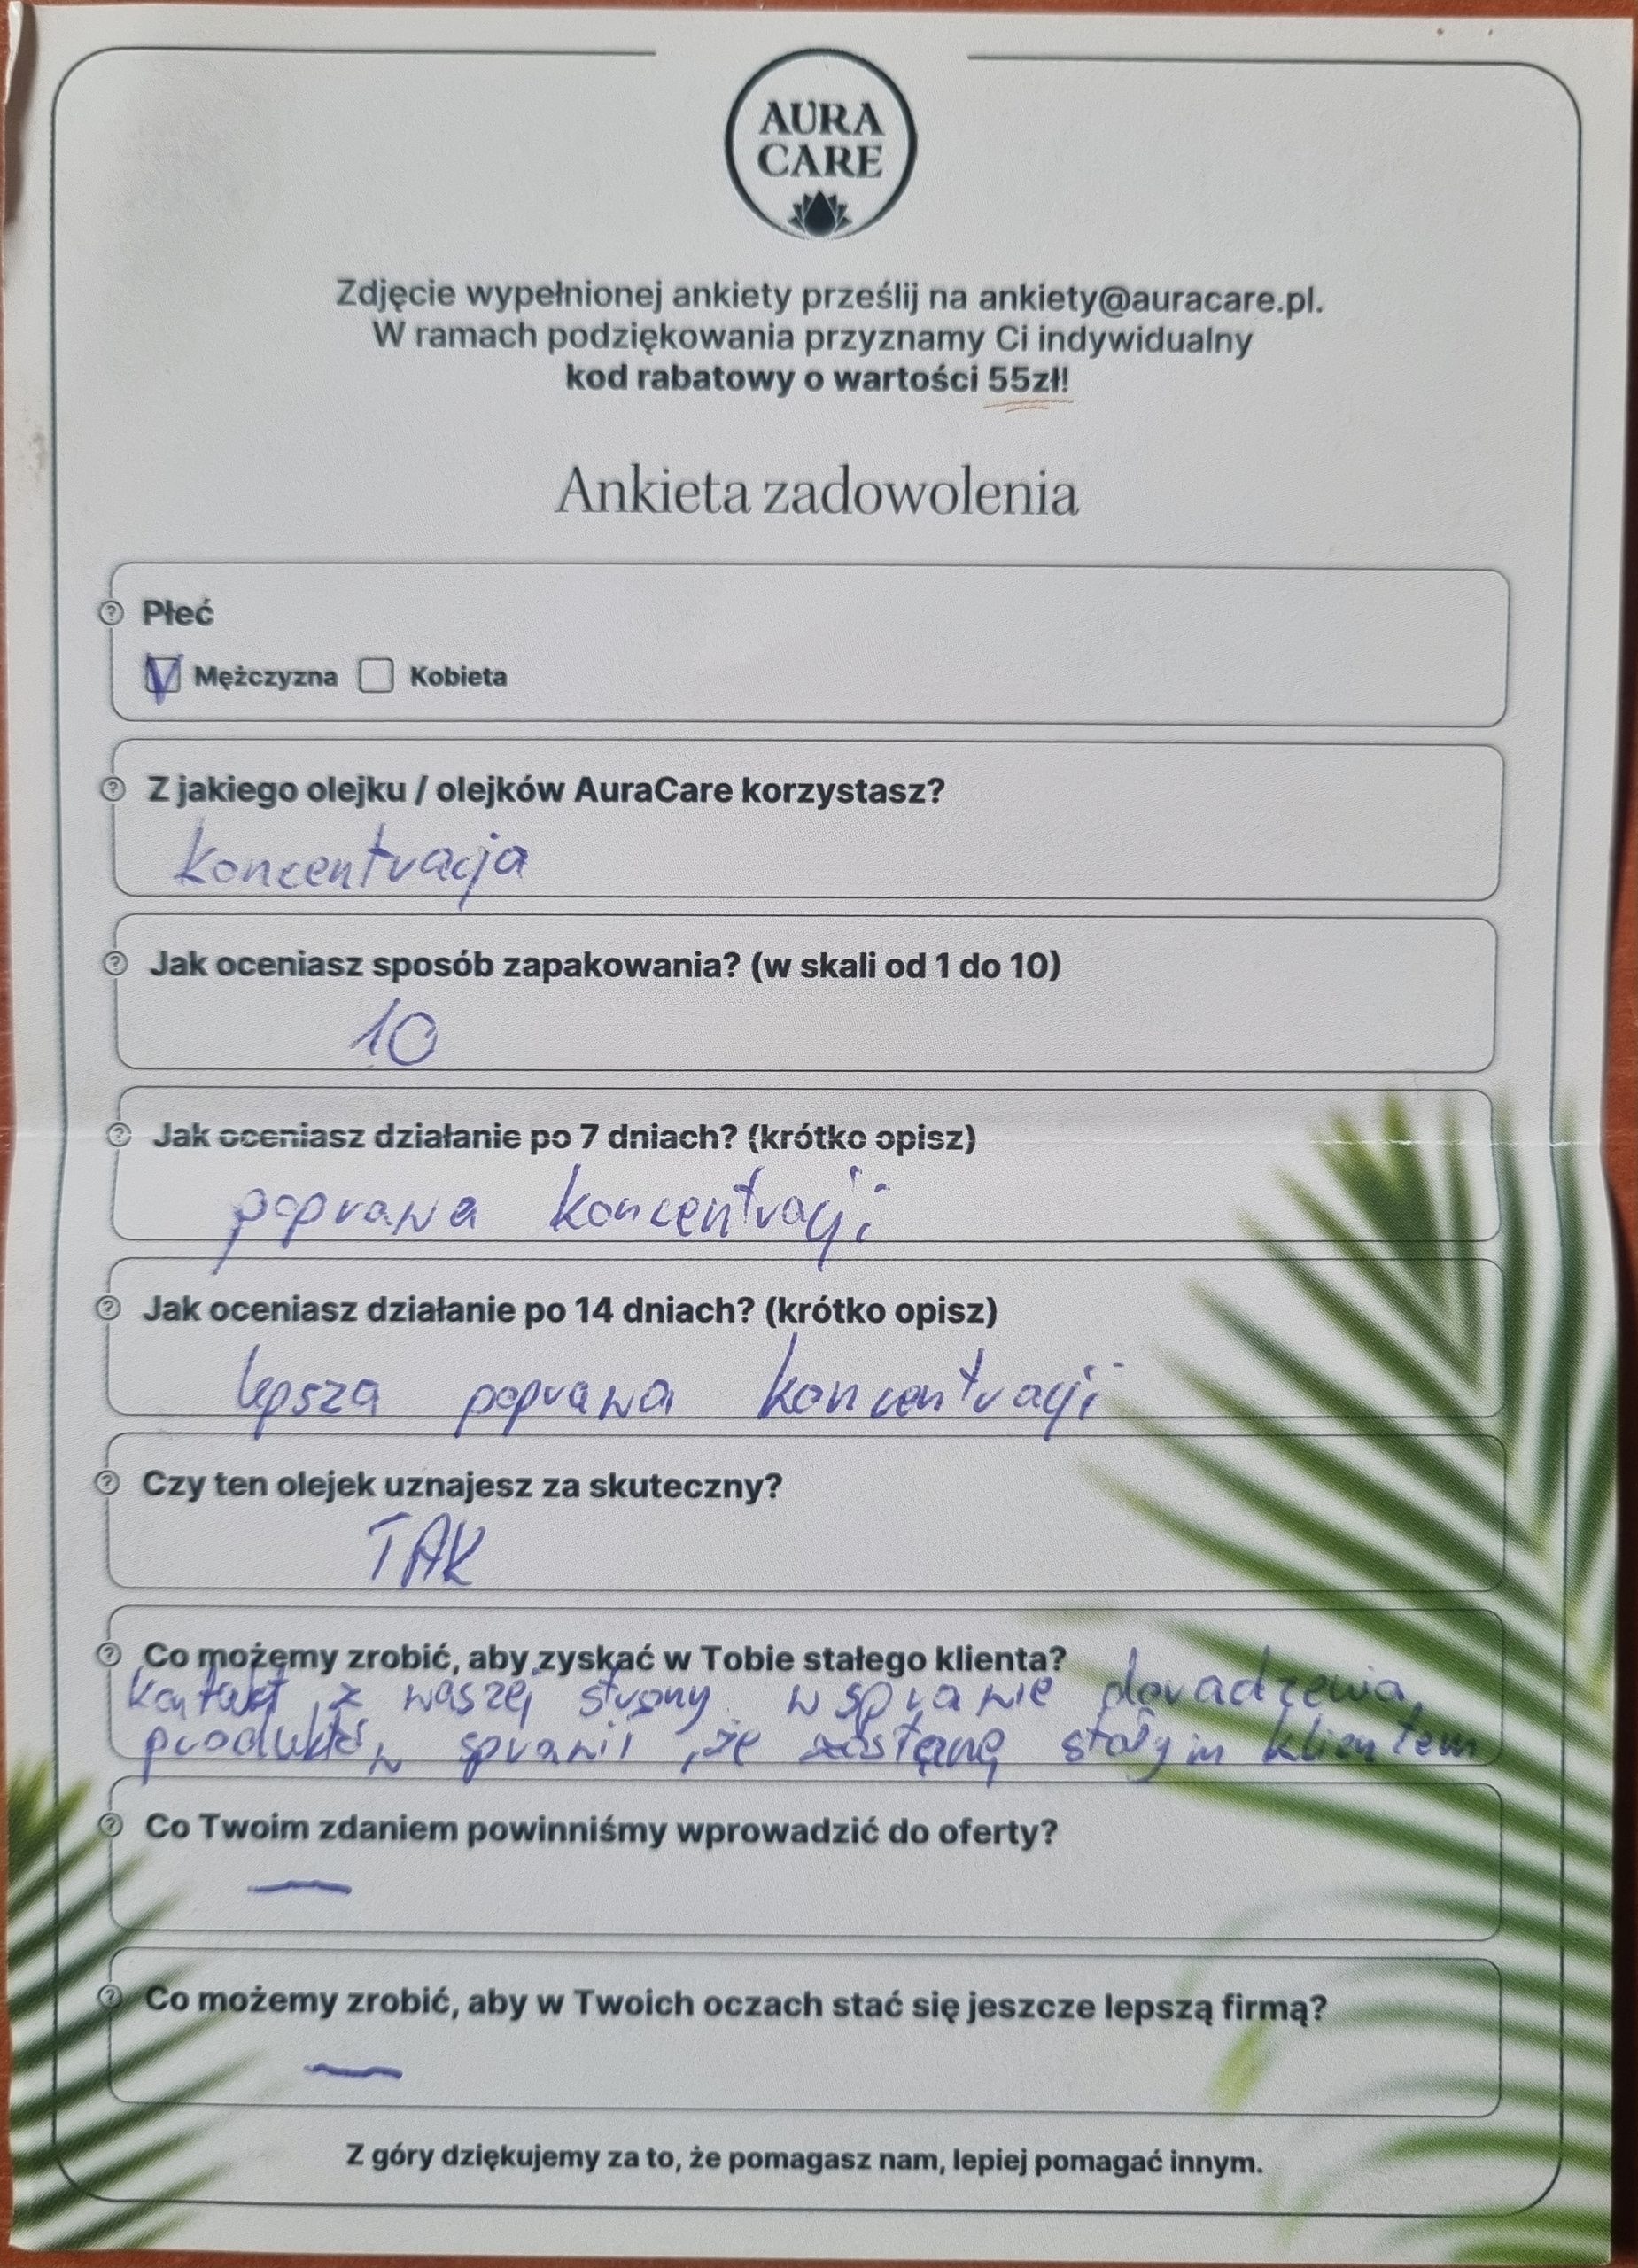 AURA
CARE
Zdjęcie wypełnionej ankiety prześlij na ankiety@auracare.pl.
W ramach podziękowania przyznamy Ci indywidualny
kod rabatowy o wartości 55zł!
Ankieta zadowolenia
Płeć
Mężczyzna Kobieta
Z jakiego olejku / olejków AuraCare korzystasz?
koncentracja
Jak oceniasz sposób zapakowania? (w skali od 1 do 10)
10
Jak oceniasz działanie po 7 dniach? (krótko opisz)
poprawa koncentracji
Jak oceniasz działanie po 14 dniach? (krótko opisz)
lepsza poprawa koncentracji
Czy ten olejek uznajesz za skuteczny?
TAK
Co możemy zrobić, aby zyskać w Tobie stałego klienta?
kontakt z waszej strony w sprawie doradzenia
produktów sprawił, że zostanę stałym klientem
Co Twoim zdaniem powinniśmy wprowadzić do oferty?
—
Co możemy zrobić, aby w Twoich oczach stać się jeszcze lepszą firmą?
—
Z góry dziękujemy za to, że pomagasz nam, lepiej pomagać innym.